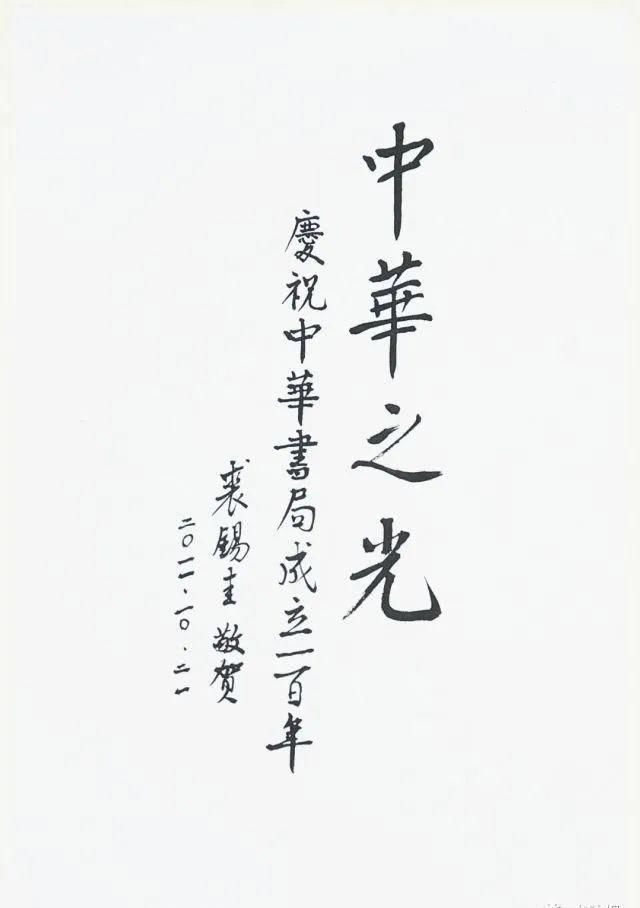 中華之光
慶祝中華書局成立一百年
裘錫圭 敬賀
二〇一一·一〇·二一